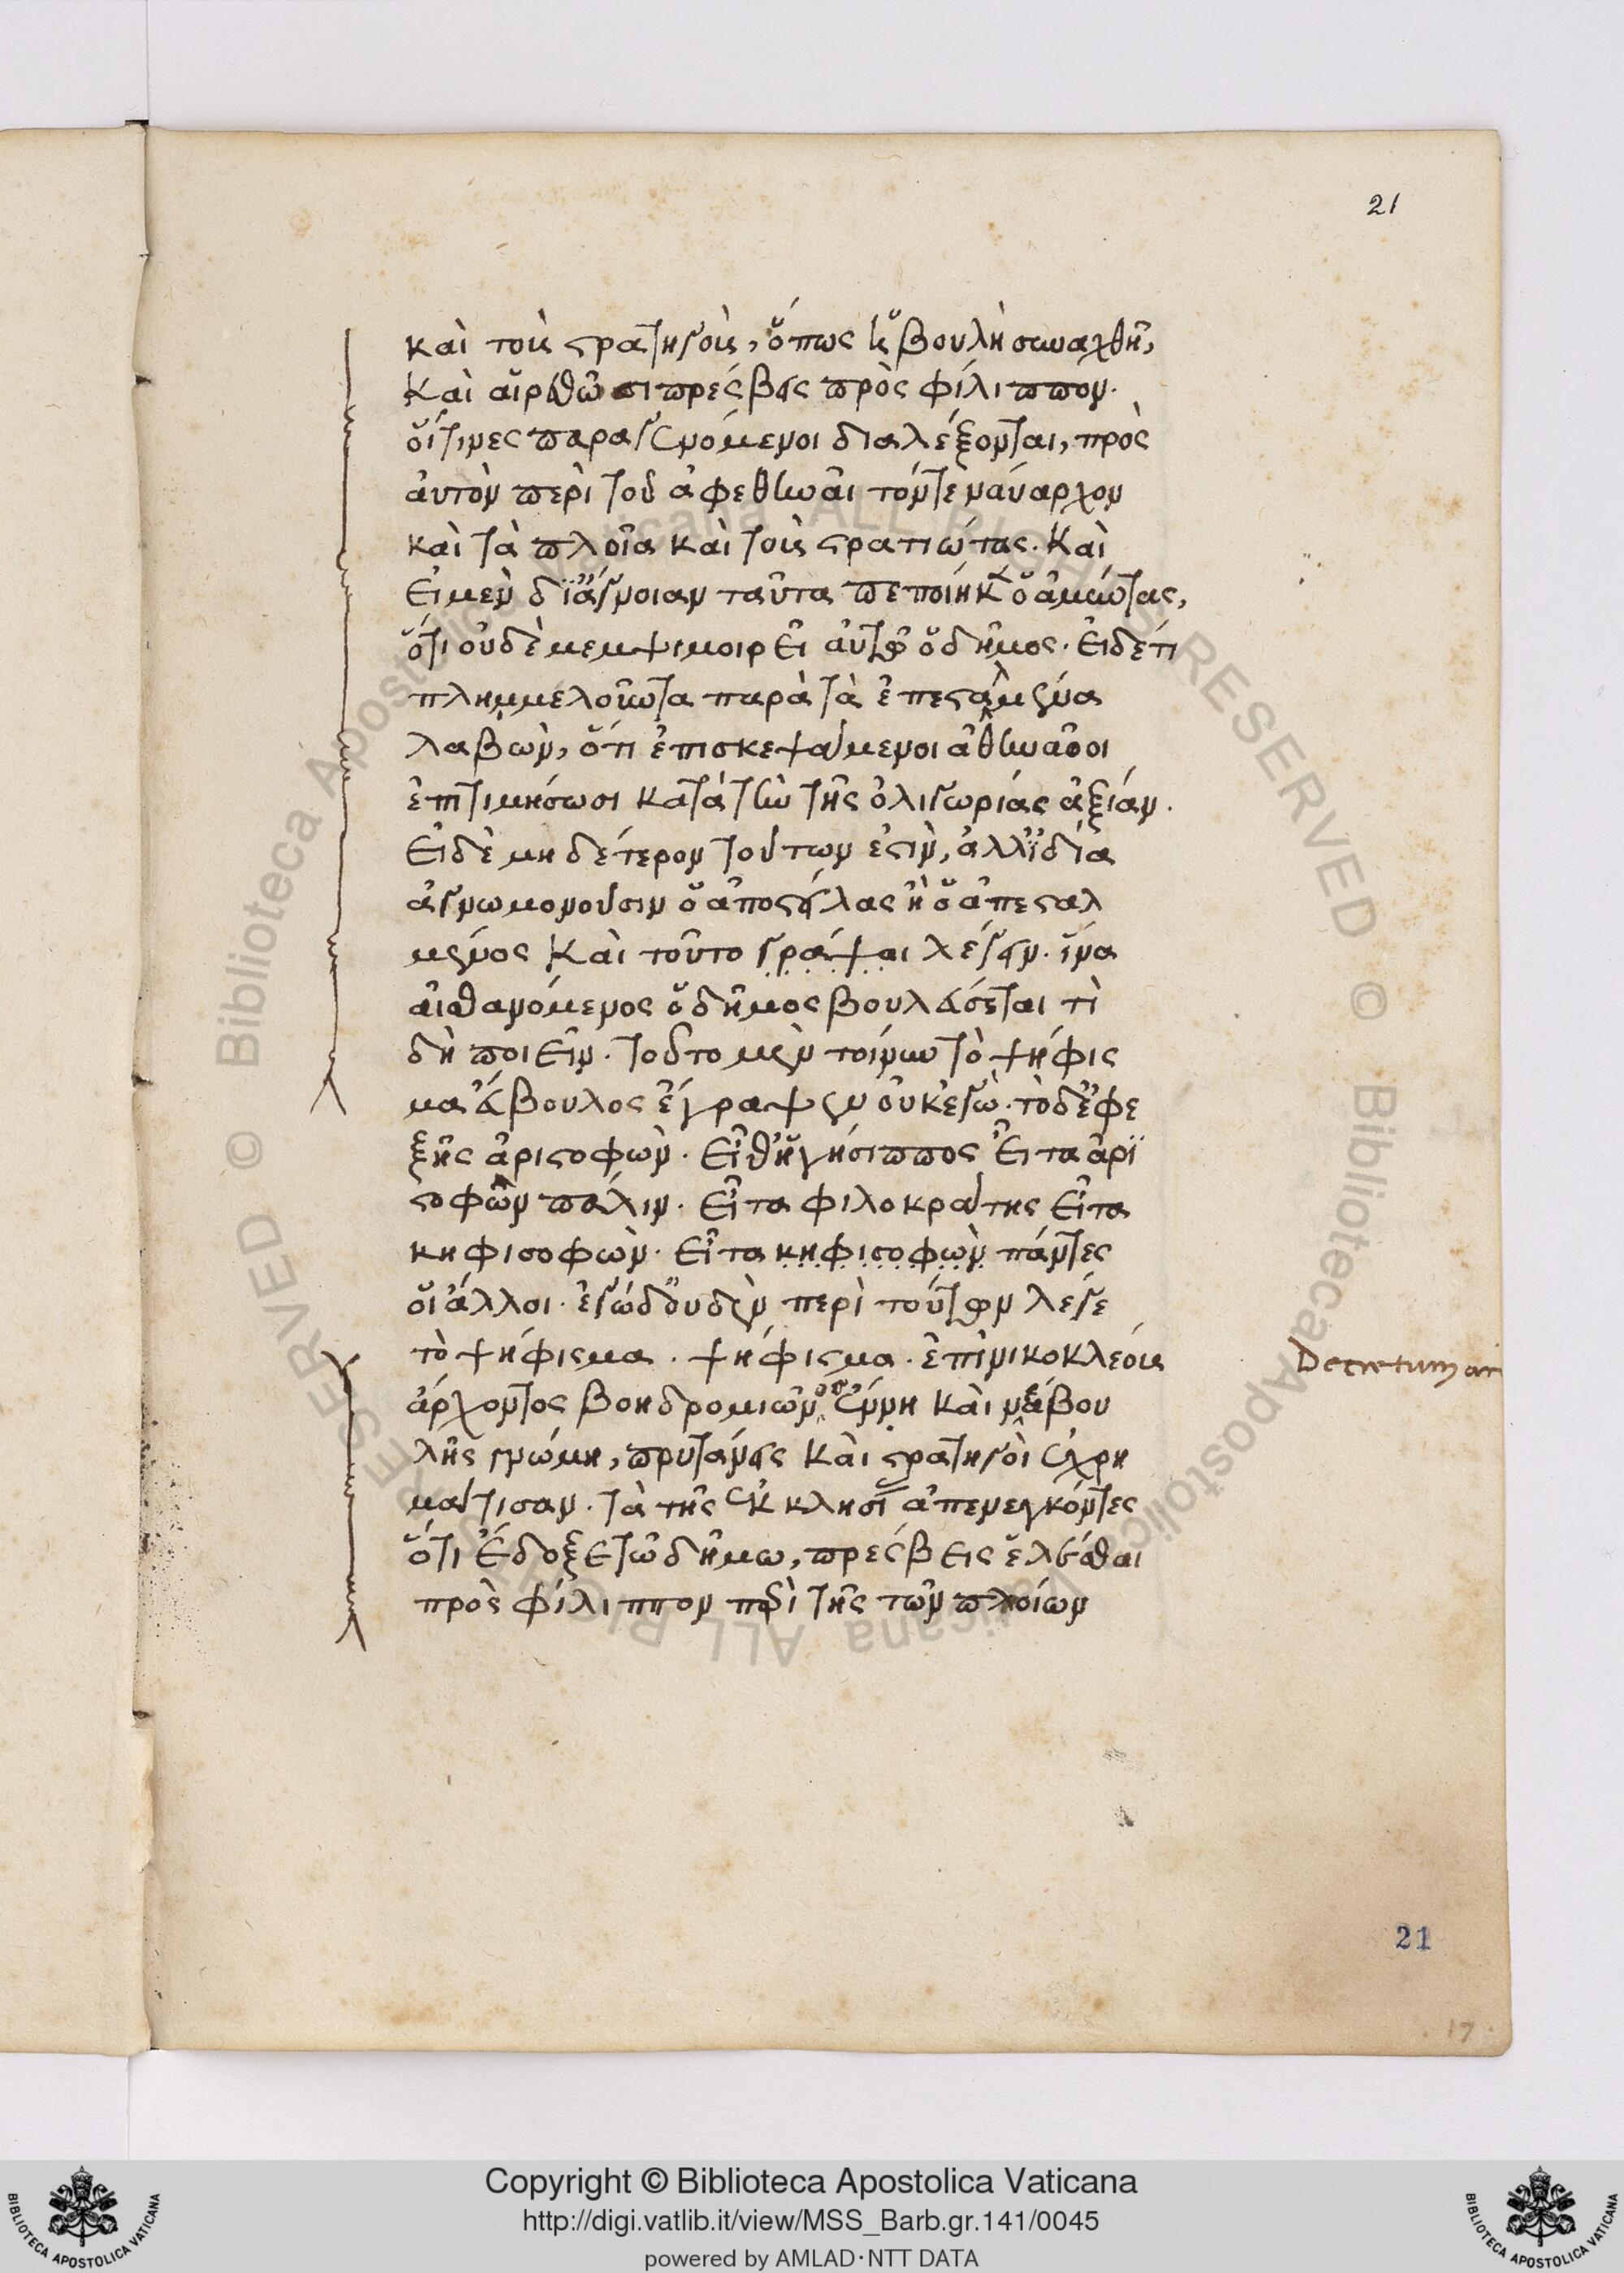 21
καὶ τοῖς στρατηγοῖς, ὅπως ἡ βουλὴ συναχθῆ,
καὶ αἱρεθῶσι πρέσβεις πρὸς φίλιππον·
οἵτινες παραγενόμενοι διαλέξονται, πρὸς
ἀυτὸν περὶ τοῦ ἀφεθῆναι τόν τε ναύαρχον
καὶ τὰ πλοῖα καὶ τοὺς στρατιώτας. Καὶ
εἰ μὲν δι ἄγνοιαν ταῦτα πεποίηκεν ὁ ἀμύντας,
ὅτι οὐδὲ μεμψιμοιρεῖ ἀυτῷ ὁ δῆμος· εἰ δέ τι
πλημμελοῦντα παρὰ τὰ ἐπεσταλμένα
λαβὼν, ὅτι ἐπισκεψάμενοι ἀθηναῖοι
ἐπιτιμήσωσι κατὰ τὴν τῆς ὀλιγωρίας ἀξίαν.
εἰ δὲ μηδέτερον τούτων ἐστὶν, ἀλλ ἰδία
ἀγνωμονοῦσιν ὁ ἀποστείλας ἢ ὁ ἀπεσταλ
μένος καὶ τοῦτο γράψαι λέγειν. ἵνα
αἰσθανόμενος ὁ δῆμος βουλεύσεται τί
δὴ ποιεῖν. τοῦτο μὲν τοίνυν τὸ ψήφισ
μα ἐύβουλος ἔγραψεν οὐκ ἐγὼ. τὸ δ ἐφε
ξῆς ἀριστοφῶν. εἶθ ἡγήσιππος εἶτα ἀρι
στοφῶν πάλιν. εἶτα φιλοκράτης εἶτα
κηφισοφὼν. εἶτα κηφισοφὼν πάντες
οἱ ἄλλοι. ἐγὼ δ οὐδὲν περὶ τούτων λέγε
τὸ ψήφισμα. ψήφισμα. ἐπὶ νικοκλέους
ἄρχοντος βοηδρομιῶνος ἕνη καὶ νέα βου
λῆς γνώμη, πρυτάνεις καὶ στρατηγοὶ ἐχρη
μάτισαν. τὰ τῆς ἐκκλησίας ἀπενεγκόντες
ὅτι ἔδοξε τῶ δήμω, πρέσβεις ἑλέσθαι
πρὸς φίλιππον περὶ τῆς τῶν πλοίων
Decretum ari
21
17
Copyright © Biblioteca Apostolica Vaticana
http://digi.vatlib.it/view/MSS_Barb.gr.141/0045
powered by AMLAD·NTT DATA